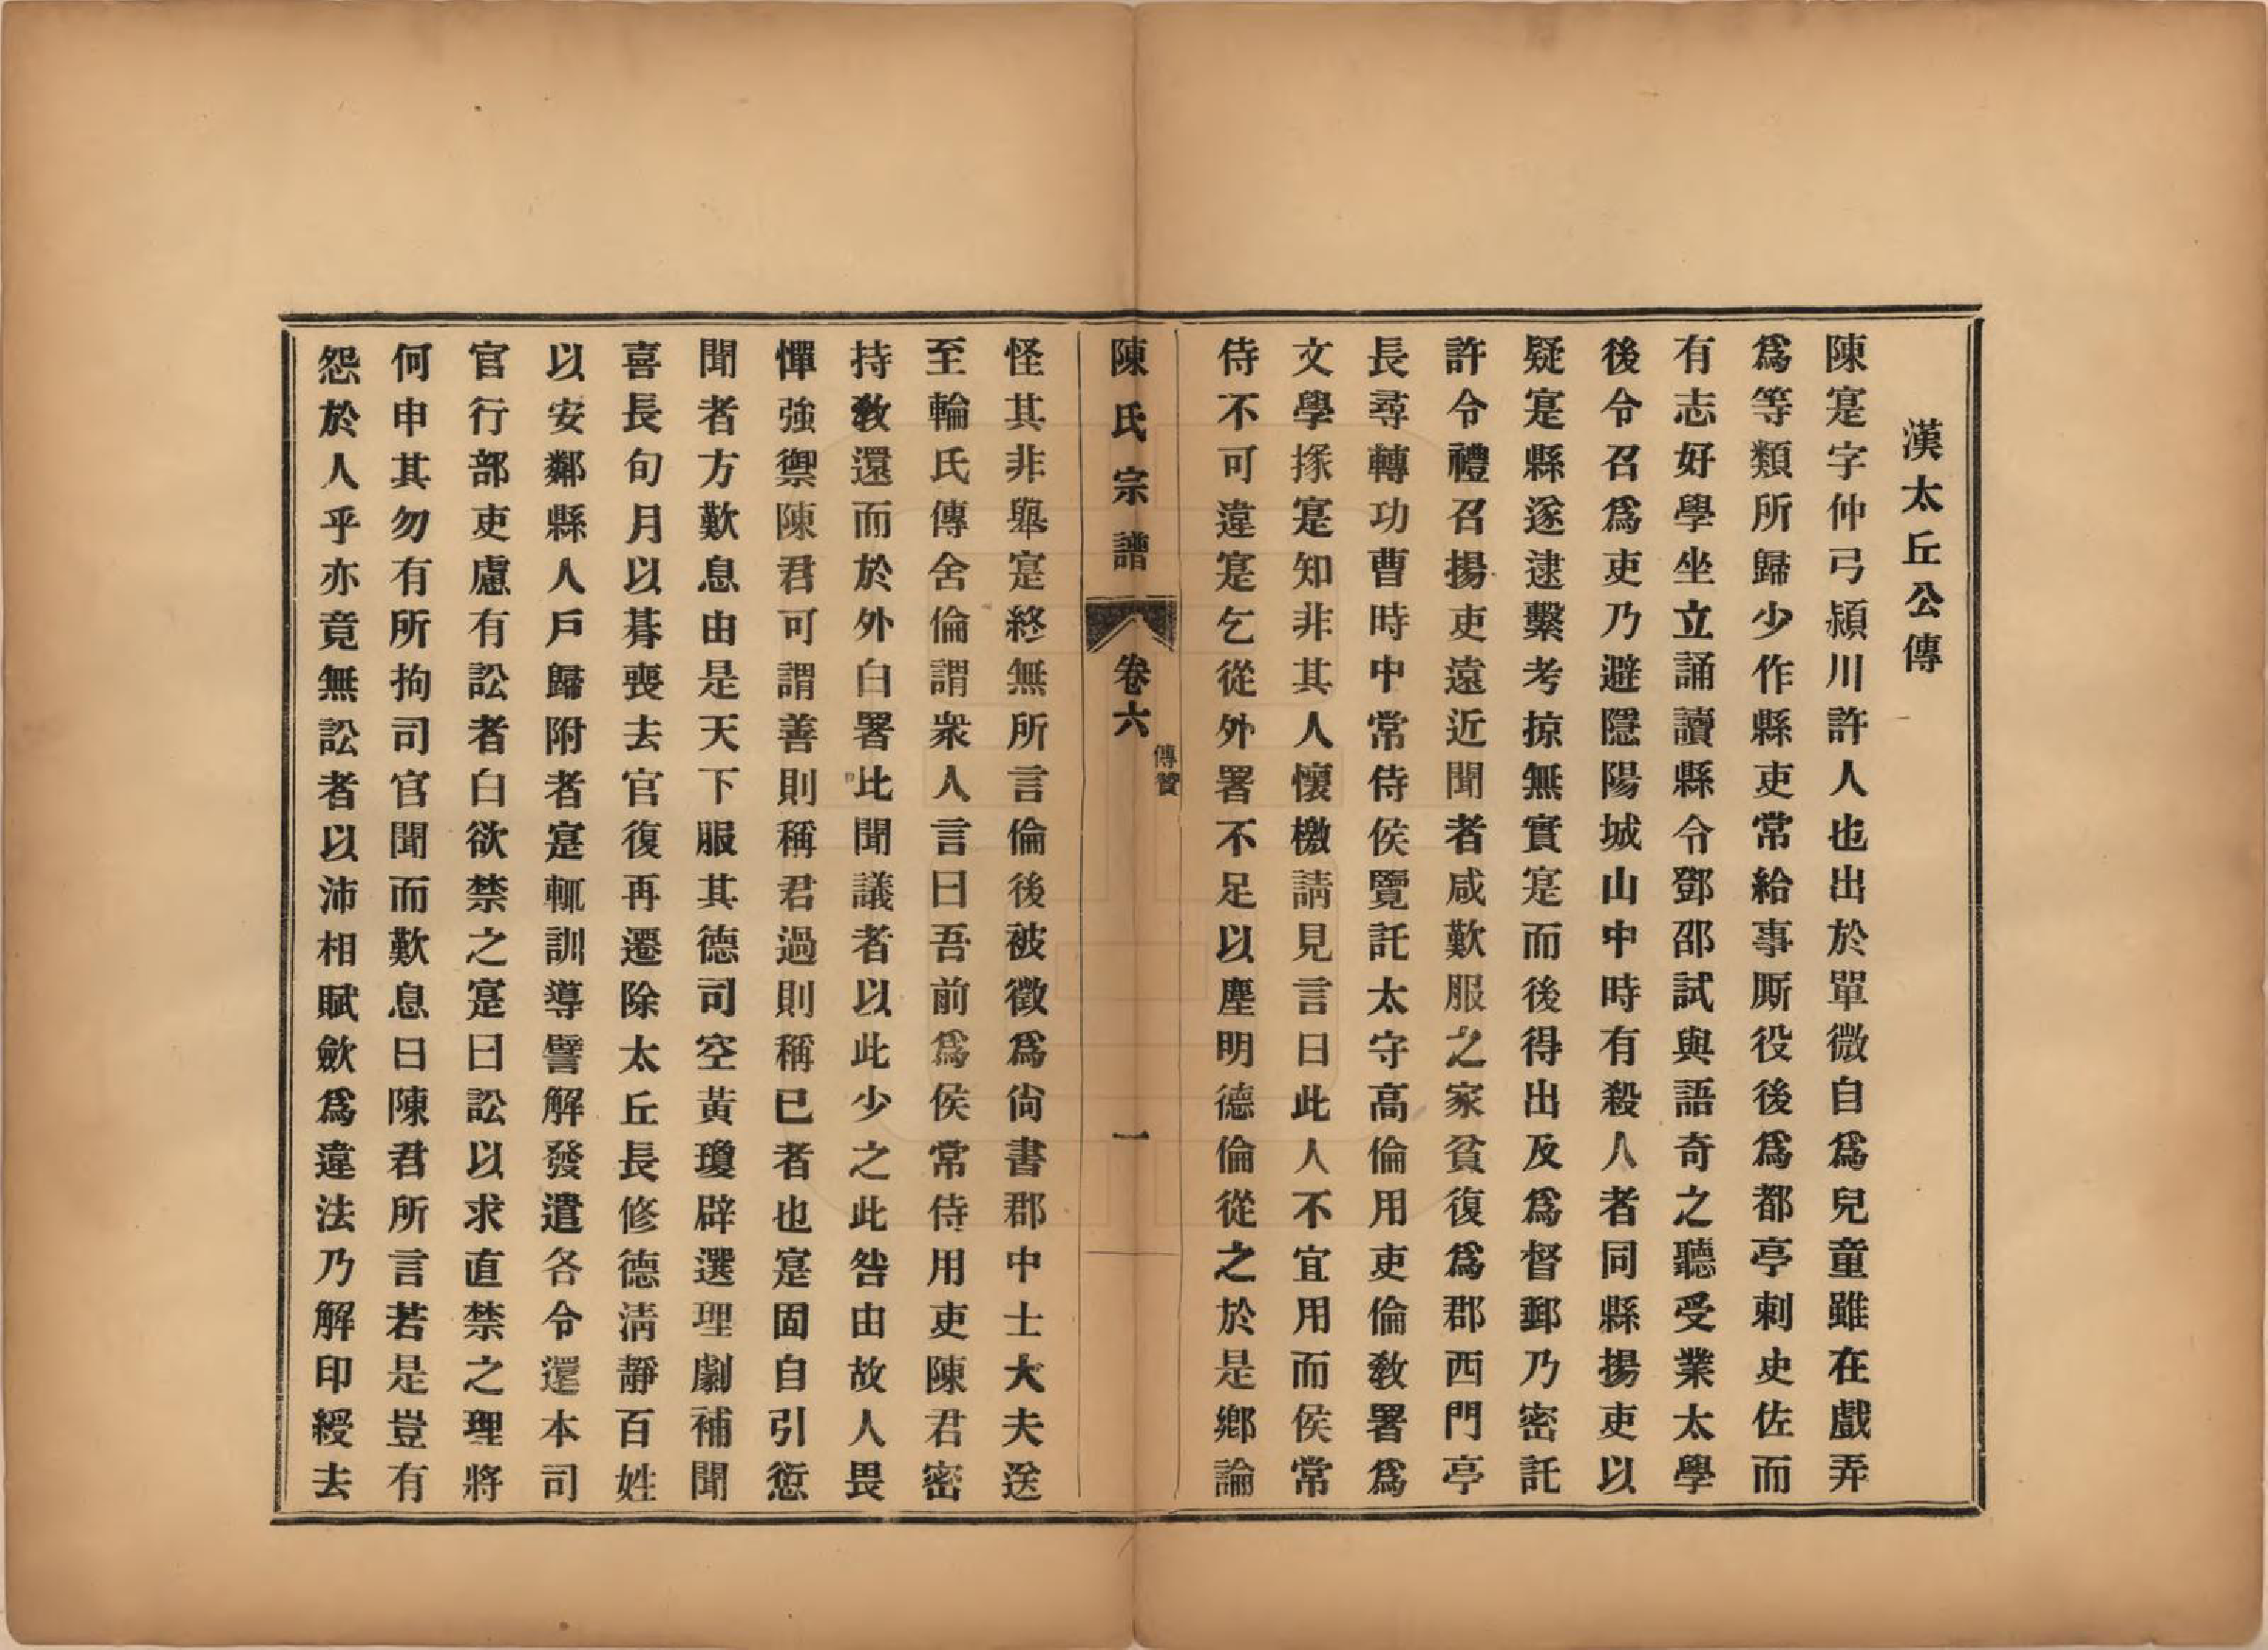 漢太丘公傳
陳寔字仲弓潁川許人也出於單微自爲兒童雖在戲弄
爲等類所歸少作縣吏常給事厮役後爲都亭刺史佐而
有志好學坐立誦讀縣令鄧邵試與語奇之聽受業太學
後令召爲吏乃避隱陽城山中時有殺人者同縣揚吏以
疑寔縣遂逮繫考掠無實寔而後得出及爲督郵乃密託
許令禮召揚吏遠近聞者咸歎服之家貧復爲郡西門亭
長尋轉功曹時中常侍侯覽託太守高倫用吏倫教署爲
文學掾寔知非其人懷檄請見言曰此人不宜用而侯常
侍不可違寔乞從外署不足以塵明德倫從之於是鄉論
陳氏宗譜
卷六
傳贊
一
怪其非舉寔終無所言倫後被徵爲尙書郡中士大夫送
至輪氏傳舍倫謂衆人言曰吾前爲侯常侍用吏陳君密
持教還而於外白署比聞議者以此少之此咎由故人畏
憚強禦陳君可謂善則稱君過則稱已者也寔固自引愆
聞者方歎息由是天下服其德司空黃瓊辟選理劇補聞
喜長旬月以朞喪去官復再遷除太丘長修德淸靜百姓
以安鄰縣人戶歸附者寔輒訓導譬解發遣各令還本司
官行部吏慮有訟者白欲禁之寔曰訟以求直禁之理將
何申其勿有所拘司官聞而歎息曰陳君所言若是豈有
怨於人乎亦竟無訟者以沛相賦斂爲違法乃解印綬去